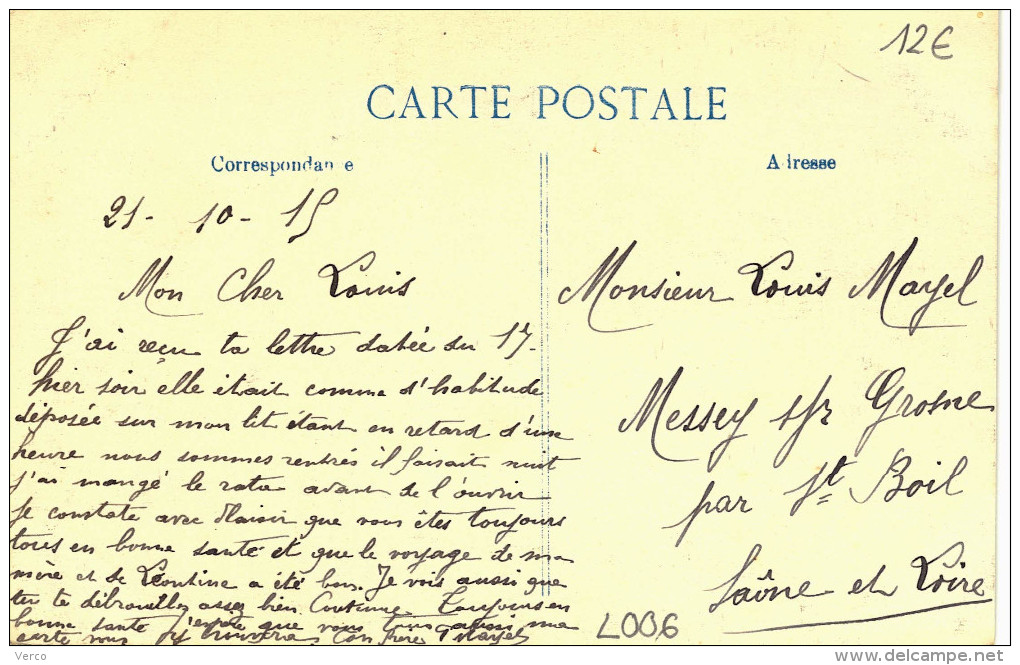 12€
CARTE POSTALE
Correspondance
Adresse
21-10-15
Mon Cher Louis
J'ai reçu ta lettre datée du 17-
hier soir elle était comme d'habitude
déposée sur mon lit étant en retard d'une
heure nous sommes rentrés il faisait nuit
j'ai mangé le rata avant de l'ouvrir
Je constate avec plaisir que vous êtes toujours
tous en bonne santé et que le voyage de ma
mère et de Léontine a été bon. Je vois aussi que
tu te débrouilles assez bien Continue Toujours en
bonne santé J'espère que vous tous aussi ma
carte vous y trouvera Ton frère Mayel
Monsieur Louis Mayel
Messey s/r Grosne
par St Boil
Saône et Loire
L006
Verco
delcampe.net